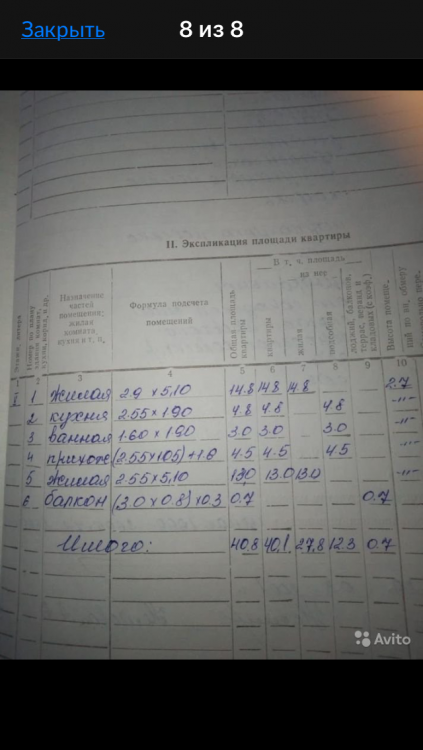 Закрыть
8 из 8
II. Экспликация площади квартиры
Этаж, литера
Номер по плану
Назначение частей помещения: жилая комната, кухня и т. п.
Формула подсчета помещений
Общая площадь квартиры
В т. ч. площадь
на нее
квартиры
жилая
подсобная
лоджий, балконов, террас, веранд и кладовых (с коэф.)
Высота помещ.
1 2 3 4 5 6 7 8 9 10
I 1 жилая 2.9 х 5,10 14.8 14.8 14.8 2.7
2 кухня 2.55 х 1.90 4.8 4.8 4.8 -"-
3 ванная 1.60 х 1.90 3.0 3.0 3.0 -"-
4 прихож (2.55х1.05)+1.8 4.5 4.5 4.5
5 жилая 2.55 х 5,10 13.0 13.0 13.0 -"-
6 балкон (3.0 х 0.8) х 0.3 0.7 0.7
Итого: 40,8 40,1 27,8 12.3 0.7
Avito